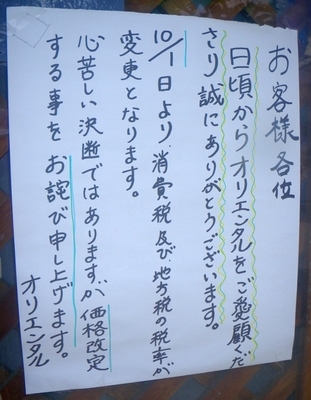 お客様各位
日頃からオリエンタルをご愛顧くだ
さり誠にありがとうございます。
10/1日より、消費税及び地方税の税率が
変更となります。
心苦しい決断ではありますが価格改定
する事をお詫び申し上げます。
オリエンタル